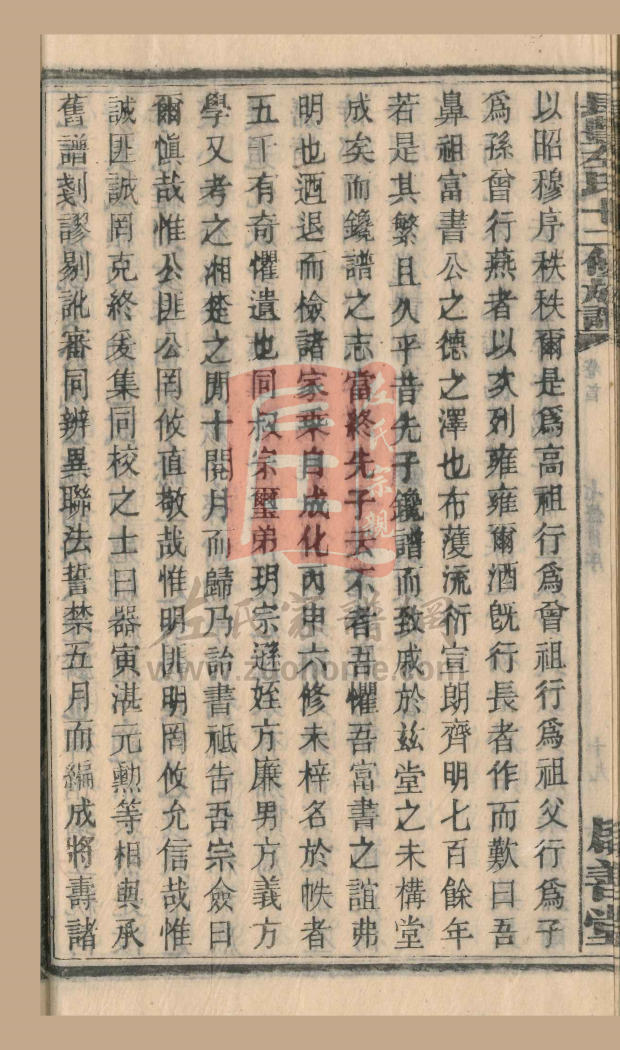 以昭穆序秩秩爾是爲高祖行爲曾祖行爲祖父行爲子
爲孫曾行燕者以次列雍雍爾酒旣行長者作而歎曰吾
鼻祖富書公之德之澤也布薙流衍宣朗齊明七百餘年
若是其繁且久乎昔先子鑱譜而致戚於玆堂之未構堂
成矣而鑱譜之志當終先子去不者吾懼吾富書之誼弗
明也迺退而檢諸家乗自成化丙申六修未梓名於帙者
五千有奇懼遺也同叔宗璽弟玥宗遜姪方廉男方義方
學又考之湘楚之閒十閱月而歸乃詒書祗告吾宗僉曰
爾愼哉惟公匪公罔攸直敬哉惟明匪明罔攸允信哉惟
誠匪誠罔克終爰集同校之士曰器寅湛元勲等相與承
舊譜剗謬剔訛審同辨異聯法誓禁五月而編成將壽諸
左氏十二修族譜
卷首
十九
左氏宗親
左氏家譜網
www.zuohome.com